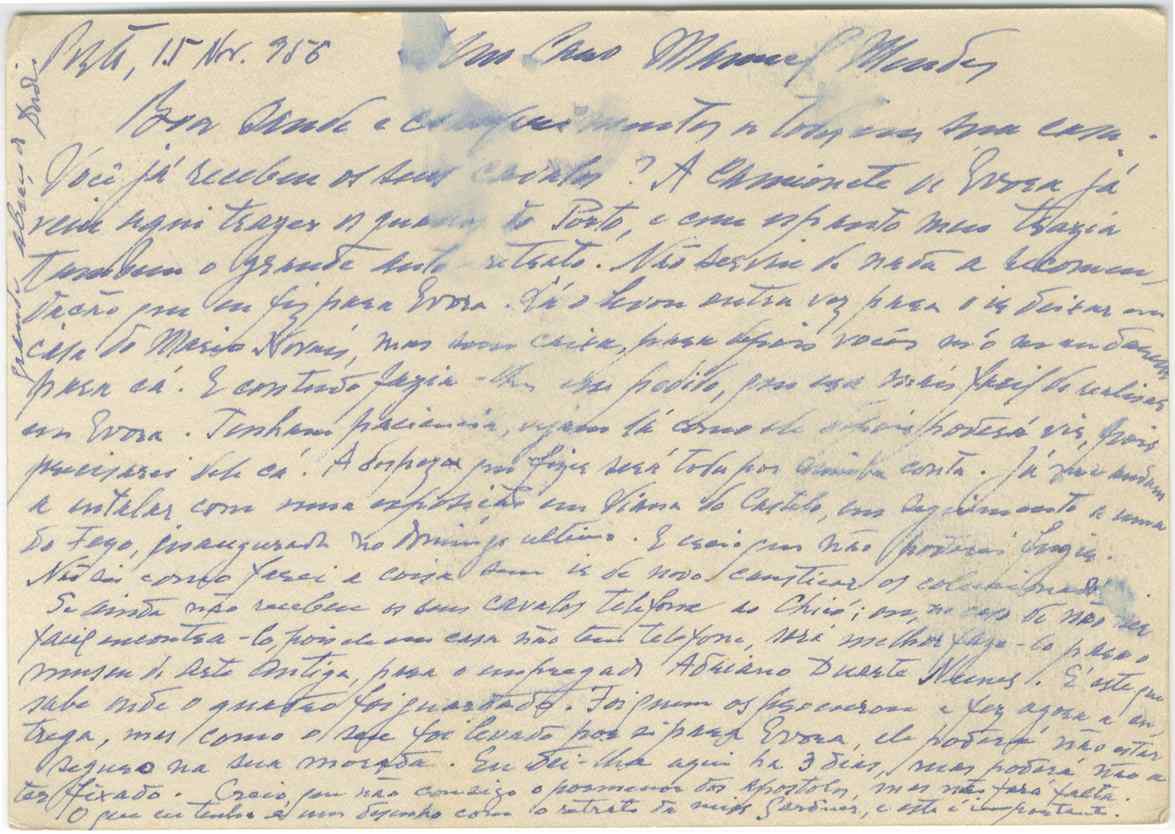 Porto, 15 Nov. 956 Meu Caro Manuel Mendes
Boa saude e cumprimentos a todos em sua casa.
Você já recebeu os seus cavalos? A Camionete de Evora já
veiu aqui trazer os quadros do Porto, e com espanto meu trazia
tambem o grande auto-retrato. Não serviu de nada a recomen
dação que eu fiz para Evora. Lá o levou outra vez para o ir deixar em
casa do Mario Novais, mas sem caixa, para depois vocês m'o mandarem
para cá. E contudo fazia-lhes um pedido, que era mais facil de realisar
em Evora. Tenham paciencia, vejam lá como ele depois poderá vir, pois
precisarei dele cá. A despeza que fizer será toda por minha conta. Já me andam
a entalar com uma exposição em Viana do Castelo, em seguimento a uma
do Fezo, inaugurada no domingo ultimo. E creio que não poderei fugir.
Não sei como farei a coisa sem ir de novo causticar os colecionadores
Se ainda não recebeu os seus cavalos telefone ao Chicó; ou, no caso de não ser
facil encontra-lo, pois ele em casa não tem telefone, será melhor faze-lo para o
museu de arte antiga, para o empregado Adriano Duarte Nunes. É este que
sabe onde o quadro foi guardado. Foi quem os procurou e fez agora a en
trega, mas como o seu foi levado por si para Evora, ele poderá não estar
seguro na sua morada. Eu dei-lha aqui ha 3 dias, mas poderá não a
ter fixado. Creio que não consigo o pormenor dos Apostolos, mas não fará falta.
O que eu tenho é um desenho com o retrato da miss Gardiner, e este é importante.
grande abraço do